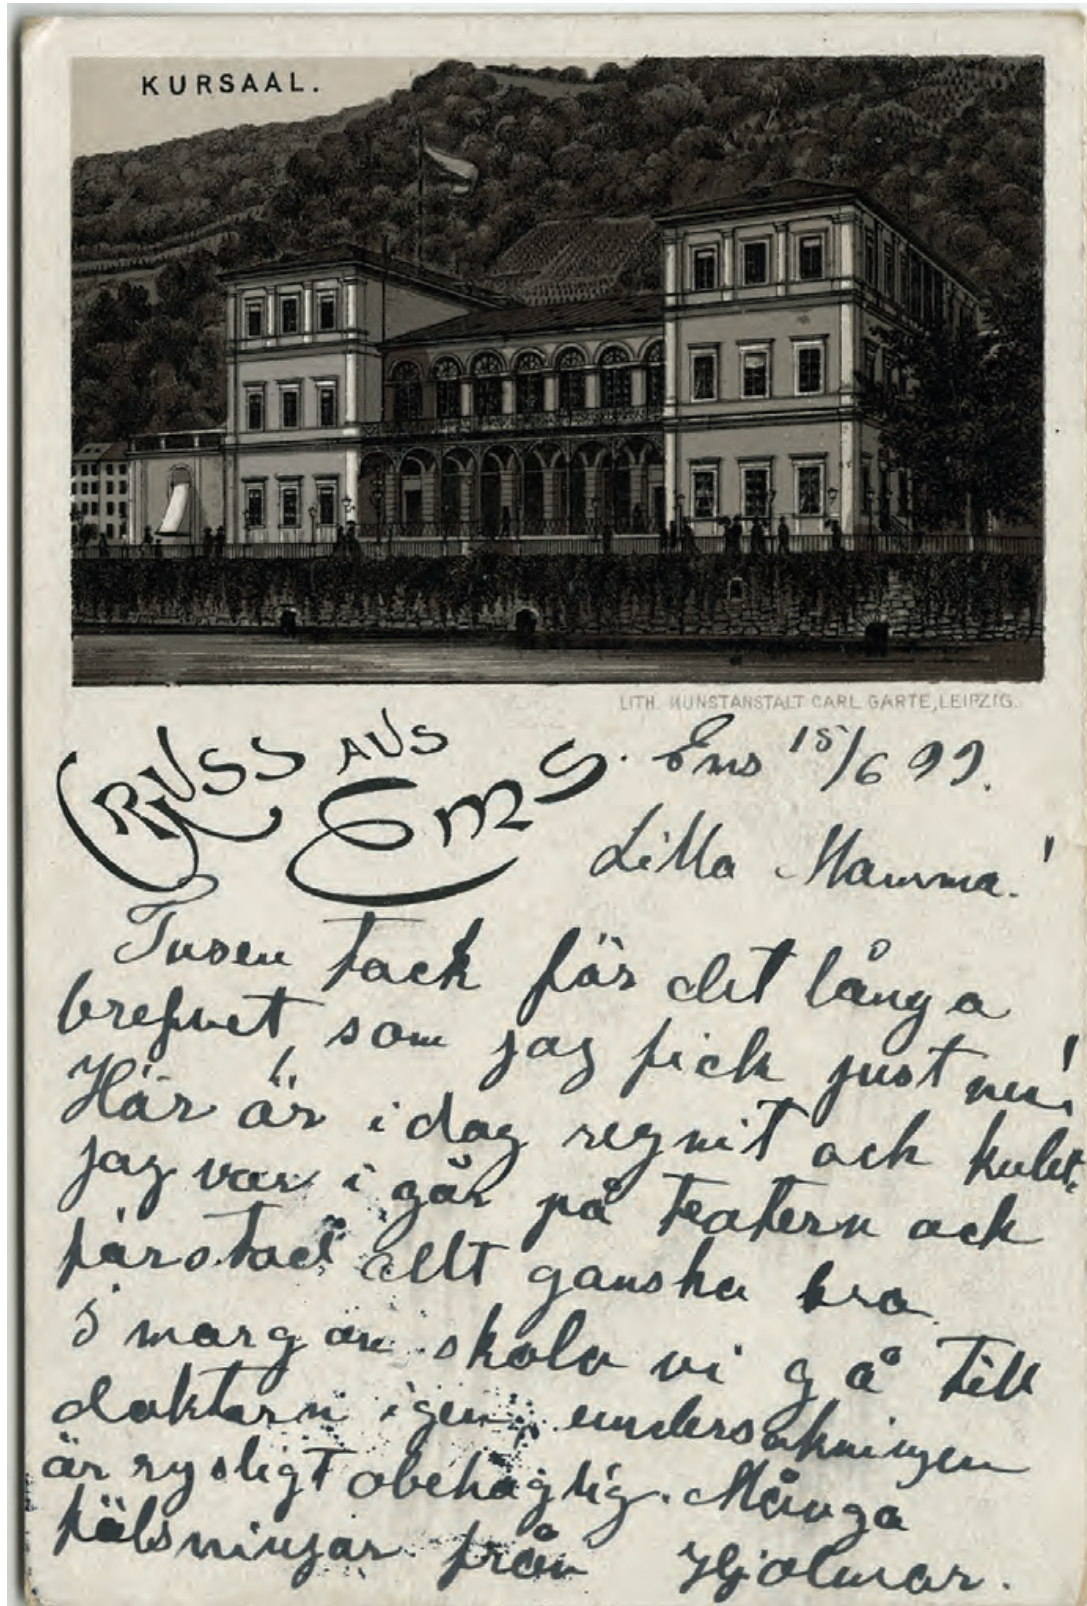 KURSAAL.
LITH. KUNSTANSTALT CARL GARTE, LEIPZIG.
GRUSS AUS
EMS.
Ems 15/6 99.
Lilla Mamma!
Tusen tack för det långa
brefvet, som jag fick just nu!
Här är idag regnit ock kulet.
jag var i går på teatern ock
förstod allt ganska bra
I margon skola vi gå till
doktorn igen, undersökningen
är rysligt obehaglig. Många
hälsningar från Hjalmar.